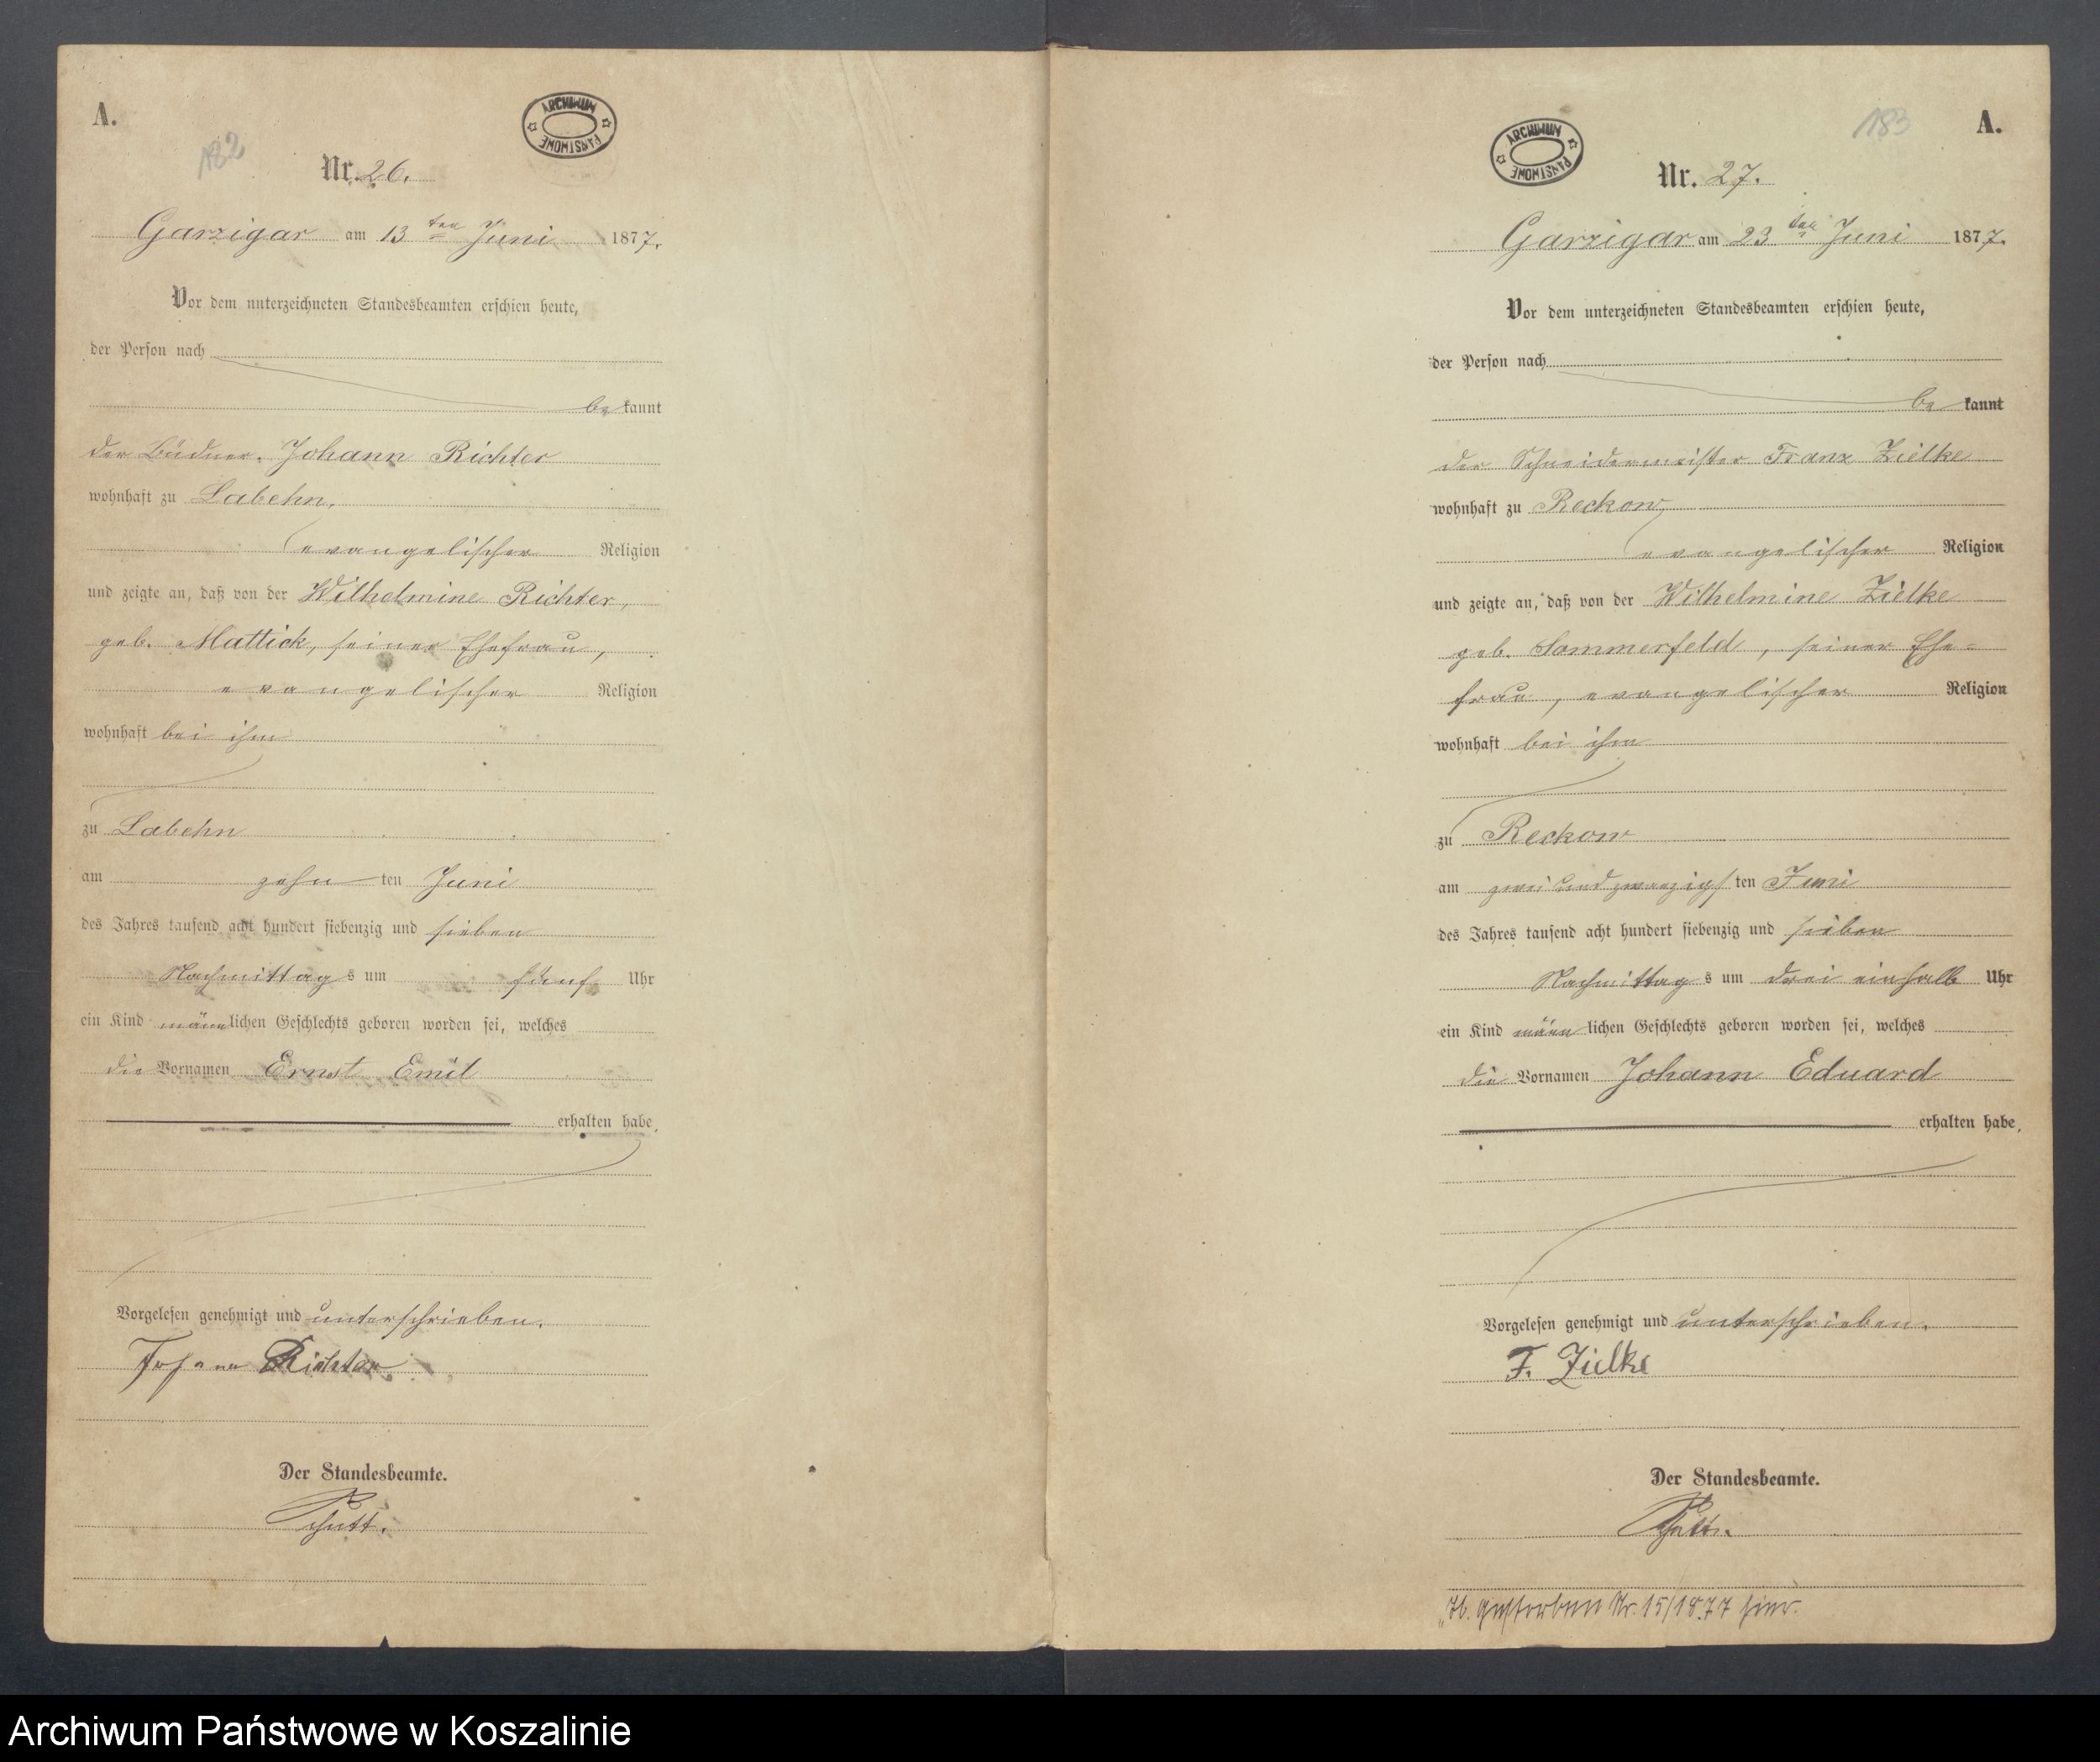 A.
182
ARCHIWUM PAŃSTWOWE
Nr. 26.
Garzigar am 13 ten Juni 1877.
Vor dem unterzeichneten Standesbeamten erschien heute,
der Person nach
be kannt
der Büdner Johann Richter
wohnhaft zu Labehn,
evangelischer Religion
und zeigte an, daß von der Wilhelmine Richter,
geb. Mattick, seiner Ehefrau,
evangelischer Religion
wohnhaft bei ihm
zu Labehn
am zehn ten Juni
des Jahres tausend acht hundert siebenzig und sieben
Nachmittag s um fünf Uhr
ein Kind männlichen Geschlechts geboren worden sei, welches
die Vornamen Ernst Emil
erhalten habe,
Vorgelesen genehmigt und unterschrieben.
Johann Richter
Der Standesbeamte.
A.
183
ARCHIWUM PAŃSTWOWE
Nr. 27.
Garzigar am 23 ten Juni 1877.
Vor dem unterzeichneten Standesbeamten erschien heute,
der Person nach
be kannt
der Schneidermeister Franz Zielke
wohnhaft zu Reckow,
evangelischer Religion
und zeigte an, daß von der Wilhelmine Zielke
geb. Sommerfeld, seiner Ehe=
frau, evangelischer Religion
wohnhaft bei ihm
zu Reckow
am zwei und zwanzigs ten Juni
des Jahres tausend acht hundert siebenzig und sieben
Nachmittag s um drei einhalb Uhr
ein Kind männ lichen Geschlechts geboren worden sei, welches
die Vornamen Johann Eduard
erhalten habe,
Vorgelesen genehmigt und unterschrieben.
F. Zielke
Der Standesbeamte.
gestorben Nr. 15/1877 hier.
Archiwum Państwowe w Koszalinie